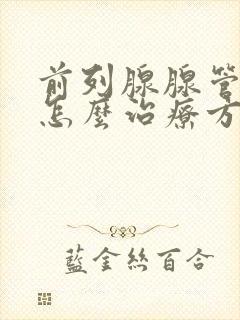 前列腺腺管
怎麼治療方
藍金絲百合